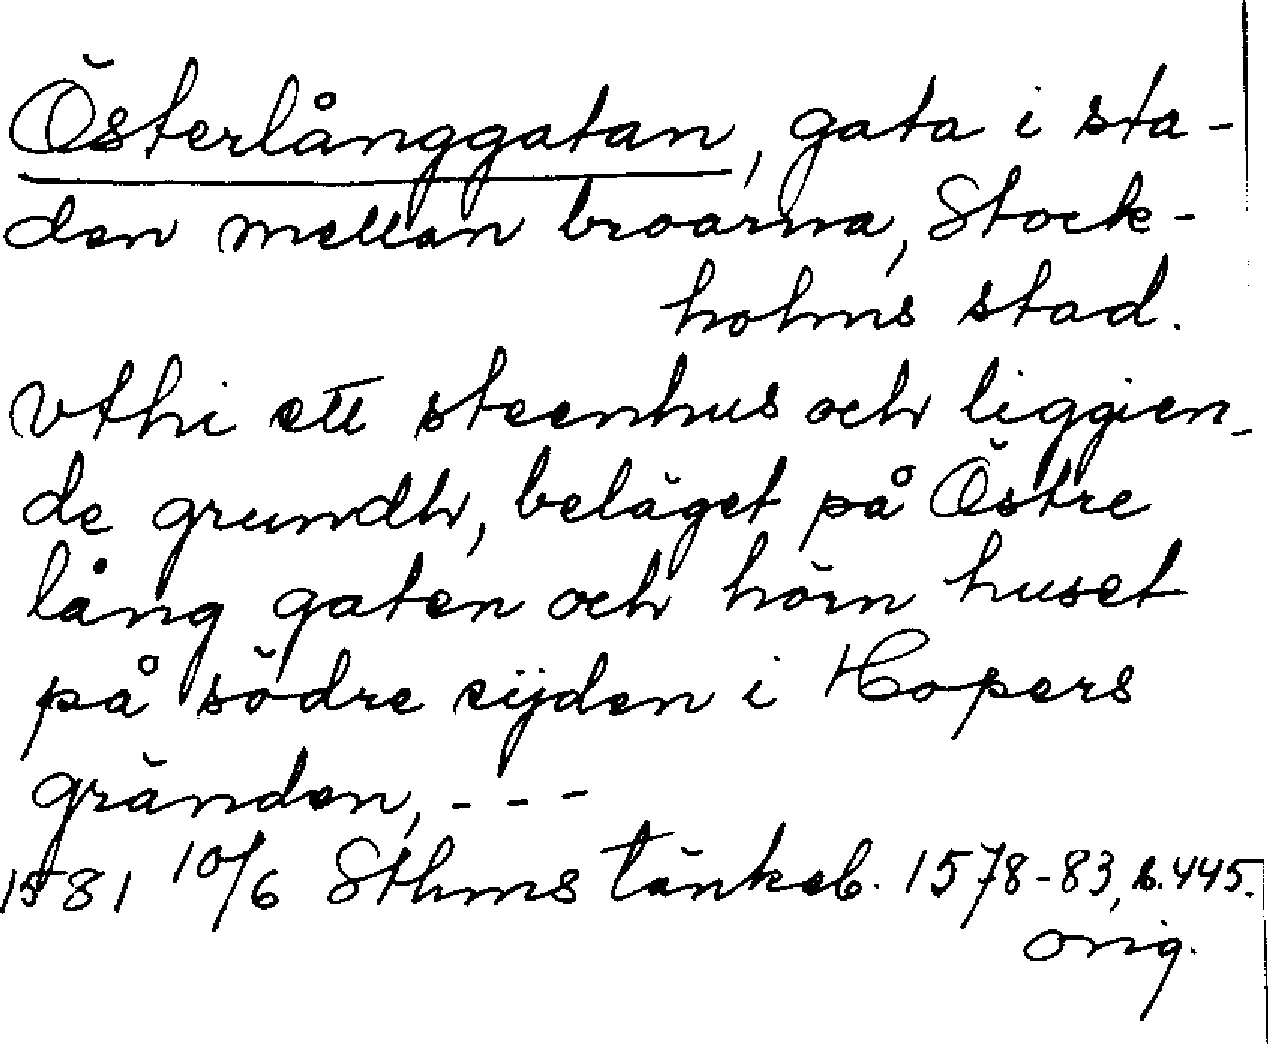 Österlånggatan, gata i sta-
den mellan broarna, Stock-
holms stad.
Vthi ett steenhus och liggien-
de grundh, beläget på Östre
lång gaten och hörn huset
på södre sijden i Hopers
gränden, - - -
1581 10/6 Sthms tänkeb. 1578-83, s. 445.
orig.